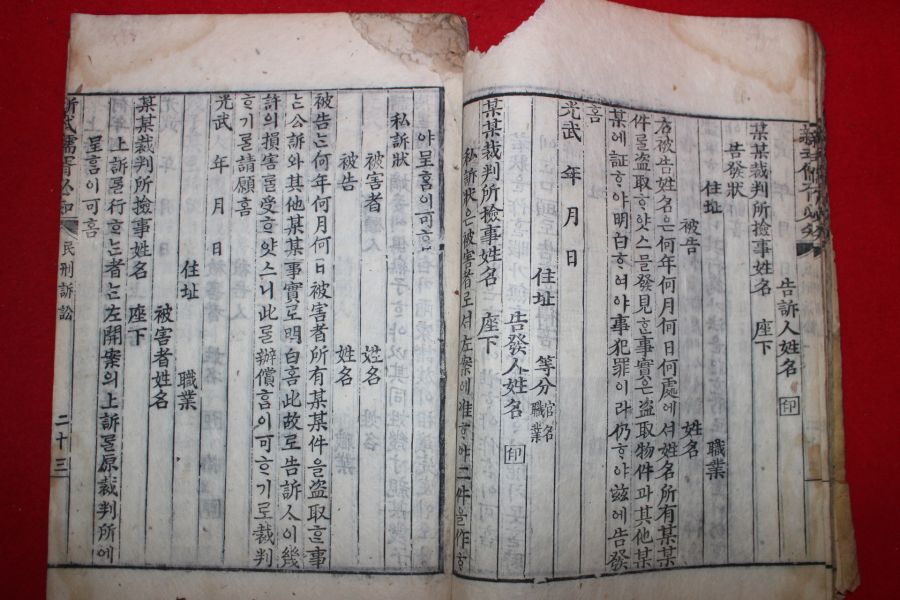 告訴人姓名 印
某某裁判所檢事姓名 座下
告發狀
住址 職業
被告 姓名
右被告姓名은何年何月何日何處에셔姓名所有某某
件를盜取ᄒᆞ얏스믈發見ᄒᆞᆫ事實은盜取物件과其他某
某에証ᄒᆞ야明白ᄒᆞ여야事犯罪이라仍ᄒᆞ야玆에告發
홈
光武 年 月 日
住址 等分 官名 職業
告發人姓名 印
某某裁判所撿事姓名 座下
私訴狀은被害者로셔左案에准ᄒᆞ야二件을作ᄒᆞ
야呈홈이可홈
私訴狀
被害者 姓名
被告 姓名
被告ᄂᆞᆫ何年何月何日被害者所有某某件을盜取ᄒᆞᆫ事
ᄂᆞᆫ公訴와其他某某事實로明白홈此故로告訴人이幾
許의損害ᄅᆞᆯ受ᄒᆞ얏스니此ᄅᆞᆯ辦償홈이可ᄒᆞ기로裁判
ᄒᆞ기ᄅᆞᆯ請願홈
光武 年 月 日
住址 職業
被害者姓名
某某裁判所撿事姓名 座下
上訴ᄅᆞᆯ行ᄒᆞᄂᆞᆫ者ᄂᆞᆫ左開案의上訴ᄅᆞᆯ原裁判所에
呈홈이可홈
民刑訴訟 二十三